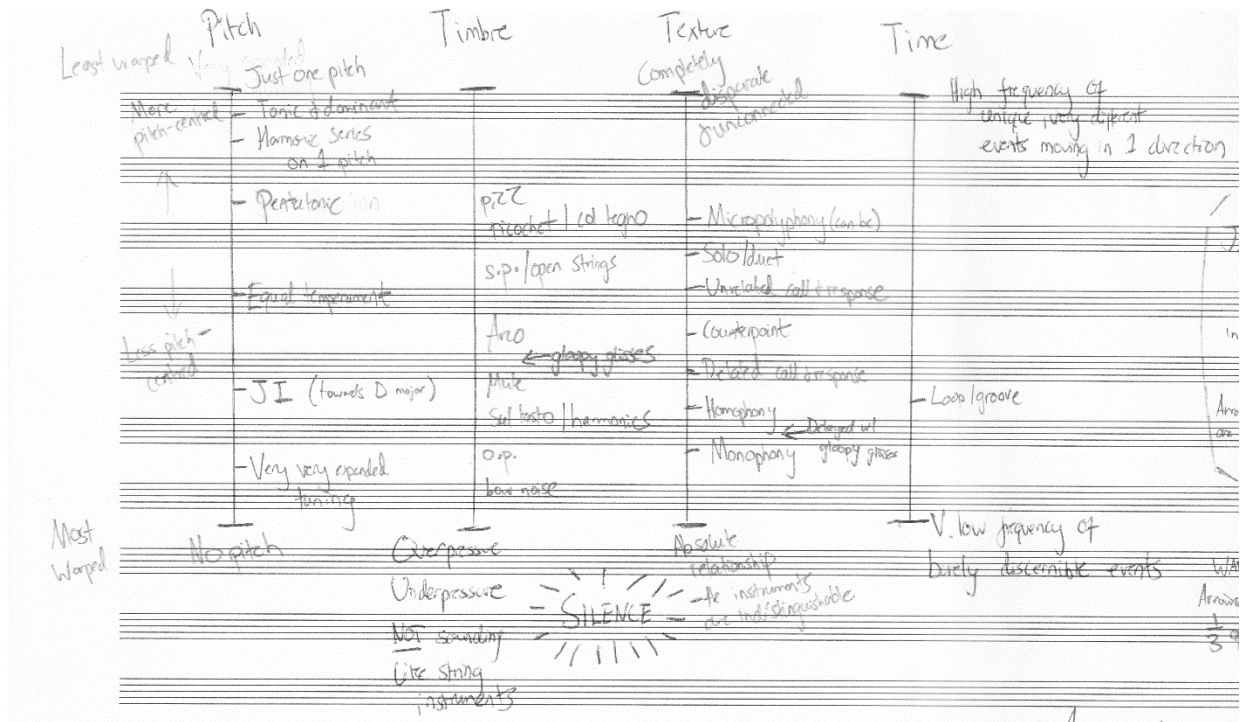 Pitch
Timbre
Texture
Time
Least warped
Just one pitch
More
pitch-central
Tonic & dominant
Harmonic series
on 1 pitch
Pentatonic
Equal temperament
Less pitch-
centred
JI (towards D major)
Very very expanded
tuning
Most
warped
No pitch
pizz
ricochet / col legno
s.p./open strings
Arco
← gloopy glisses
Mute
Sul tasto / harmonics
o.p.
bow noise
Overpressure
Underpressure
NOT sounding
like string
instruments
SILENCE
Completely
disparate
& unconnected
Micropolyphony (can be)
Solo/duet
Unrelated call & response
Counterpoint
Related call & response
Homophony
← Delayed w/
gloopy glisses
Monophony
Absolute
relationship
instruments
are indistinguishable
High frequency of
unique, very different
events moving in 1 direction
Loop/groove
V. low frequency of
barely discernible events
J
in
Arro
are
WA
Arrows
1/3